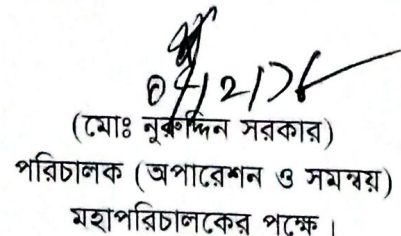 (মোঃ নুরুদ্দিন সরকার)
পরিচালক (অপারেশন ও সমন্বয়)
মহাপরিচালকের পক্ষে।